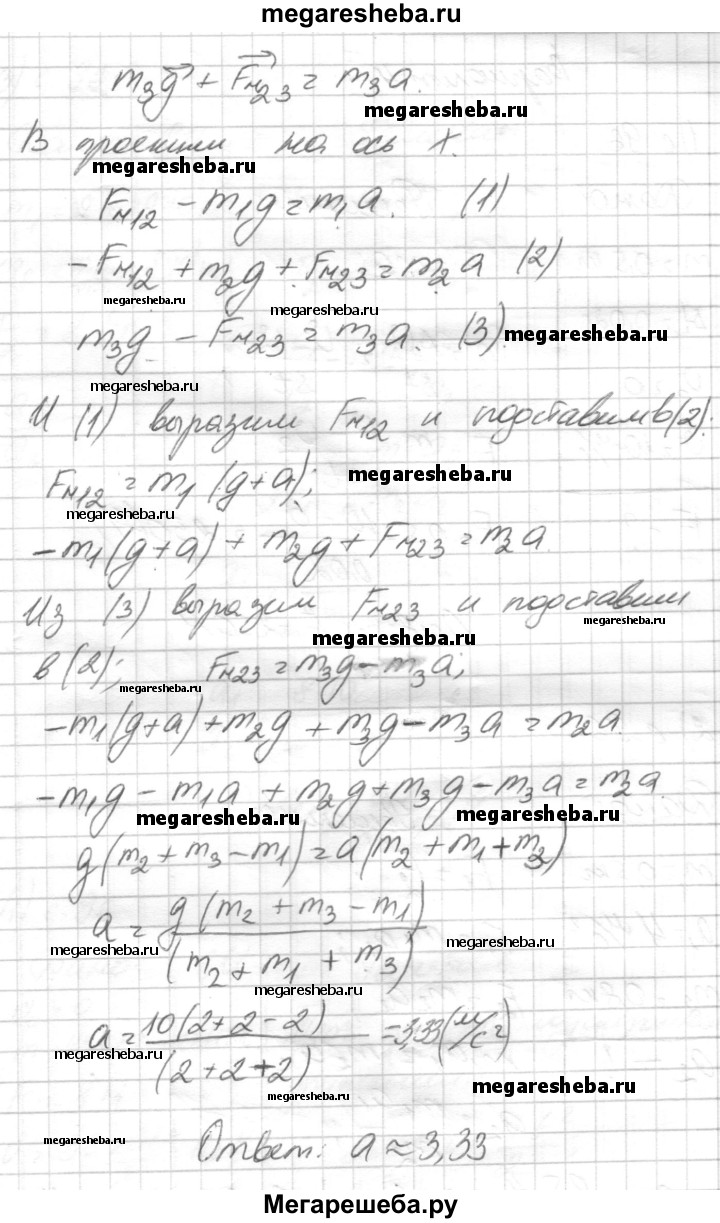 megaresheba.ru
m₃g⃗ + F⃗н₂₃ = m₃a.
megaresheba.ru
В проекции на ось X.
megaresheba.ru
Fн₁₂ - m₁g = m₁a. (1)
-Fн₁₂ + m₂g + Fн₂₃ = m₂a (2)
megaresheba.ru megaresheba.ru
m₃g - Fн₂₃ = m₃a. (3). megaresheba.ru
megaresheba.ru
И (1) выразим Fн₁₂ и подставим в (2).
Fн₁₂ = m₁(g+a); megaresheba.ru
megaresheba.ru
-m₁(g+a) + m₂g + Fн₂₃ = m₂a
Из (3) выразим Fн₂₃ и подставим
megaresheba.ru megaresheba.ru
в (2); Fн₂₃ = m₃g - m₃a;
megaresheba.ru
-m₁(g+a) + m₂g + m₃g - m₃a = m₂a.
-m₁g - m₁a + m₂g + m₃g - m₃a = m₂a.
megaresheba.ru megaresheba.ru
g(m₂ + m₃ - m₁) = a(m₂ + m₁ + m₃)
a = g(m₂ + m₃ - m₁)
megaresheba.ru megaresheba.ru
(m₂ + m₁ + m₃)
megaresheba.ru
a = 10(2+2-2) = 3,33 (м/с²)
megaresheba.ru
(2+2+2)
megaresheba.ru
megaresheba.ru
megaresheba.ru
Ответ: a ≈ 3,33
Мегарешеба.ру